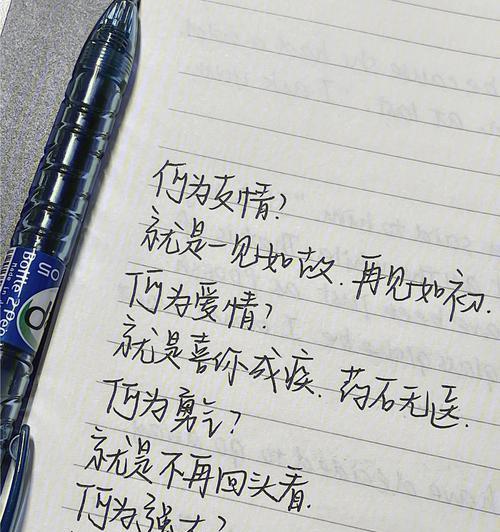 何为友情?
就是一见如故.再见如初.
何为爱情?
就是喜你成疾.药石无医.
何为勇气?
就是不再回头看.
何为强大?
05
Bottle 2 Pen
Made in